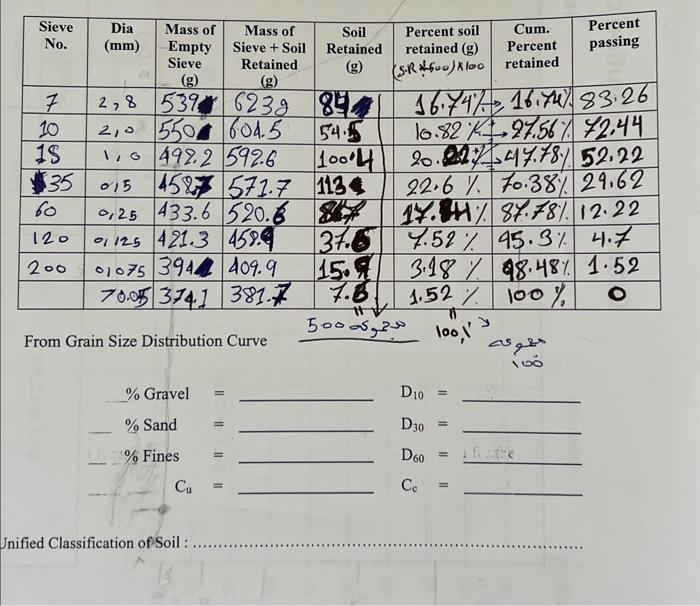 Sieve No. Dia (mm) Mass of Empty Sieve (g) Mass of Sieve + Soil Retained (g) Soil Retained (g) Percent soil retained (g) (S.R ÷500)×100 Cum. Percent retained Percent passing
7 2,8 539 623g 84 16.74% 16.74% 83.26
10 2,0 550 604.5 54.5 10.82% 27.56% 72.44
18 1,0 492.2 592.6 100.4 47.78% 52.22
35 0,5 458.7 571.7 113 22.6% 70.38% 29.62
60 0,25 433.6 520.6 87.78% 12.22
120 0,125 421.3 37.6 7.52% 95.3% 4.7
200 0,075 394 409.9 15.9 3.18% 98.48% 1.52
374.1 381.7 7.6 1.52% 100% 0
500 مجموعه 100%
مجموعه
100
From Grain Size Distribution Curve
% Gravel = D10 =
% Sand = D30 =
% Fines = D60 =
Cu = Cc =
Unified Classification of Soil :